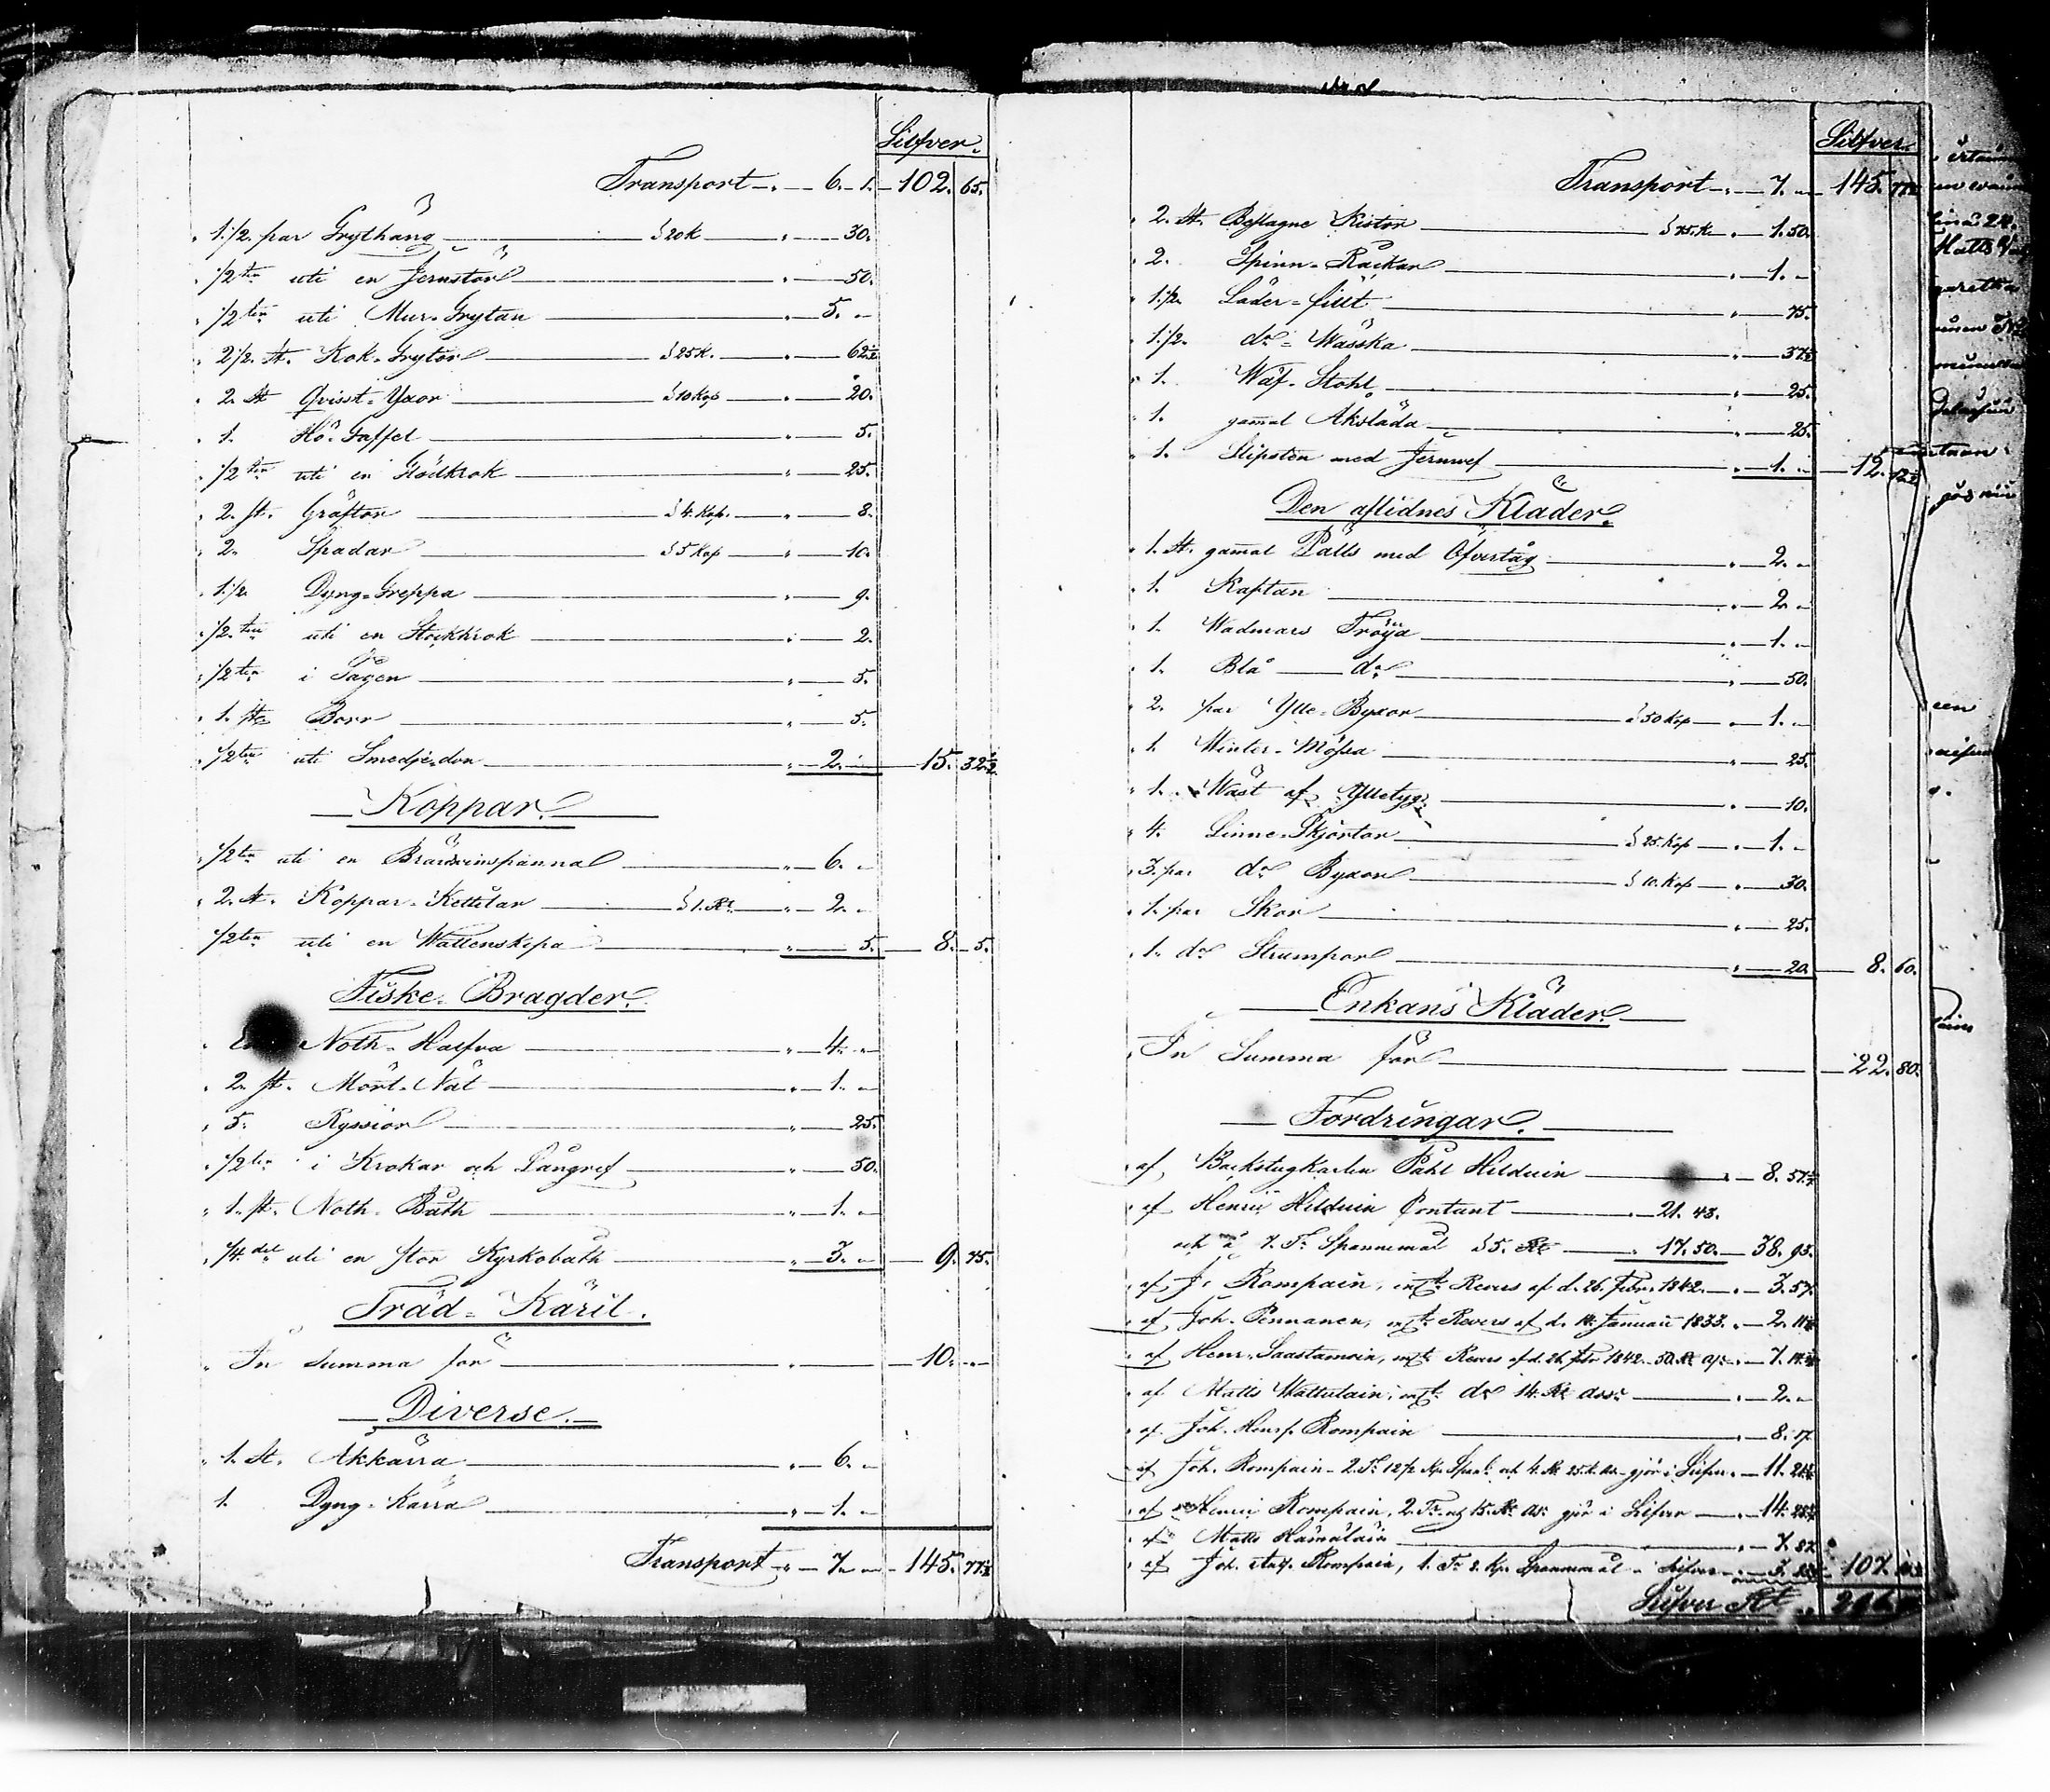 Silfver.
Transport 6. 1. 102. 65.
1 1/2 par Grythäng à 20 K 30.
1/2ten uti en Jernstör 50.
1/2ten uti Mur-Grytan 5. "
2 1/2 st. Kok-Grytor à 25 K. 62 1/2
2 st Qvisst-Yxor à 10 Kop 20.
1. Hö-Gaffel 5.
1/2ten uti en Glödkrok 25.
2. st. Gräftor à 4 Kop. 8.
2. Spadar à 5 Kop 10.
1 1/2 Dyng-Greppa 9.
1/2ten uti en Stockkrok 2.
1/2ten i Sågen 5.
1. st Borr 5.
1/2ten uti Smedje-don 2. " 15. 32 1/2
Koppar.
1/2ten uti en Brännvinspanna 6. "
2. st. Koppar-Kettilar à 1. Rl 2. "
1/2ten uti en Wattenskopa 5. 8. 5.
Fiske-Bragder.
Noth-Halfva 4. "
2. st. Mört-Nät 1. "
5. Ryssior 25.
1/2ten i Krokar och Långref 50.
1. st. Noth-Båth 1. "
1/4 del uti en stor Kyrkobåth 3. " 9. 75.
Träd-Käril.
In summa för 10. "
Diverse.
1. st. Åkkärra 6. "
1. Dyng-Kärra 1. "
Transport 7. " 145. 77 1/2
Silfver.
Transport 7. " 145. 77 1/2
2. st. Beslagne Kistor à 75. K. 1. 50.
2. Spinn-Råckar 1. "
1 1/2 Läder-fillt 75.
1 1/2 do Wässka 37 1/2
1. Wäf-Stohl 25.
1. gamal Åkslada 25.
1. Slipsten med Jernvef 1. " 12. 12 1/2
Den aflidnes Kläder.
1. st. gamal Pälls med Öfvertåg 2. "
1. Kaftan 2. "
1. Wadmars Tröija 1. "
1. Blå do 50.
2. par Ylle-Byxor à 50 Kop 1. "
1. Winter-Mössa 25.
1. Wäst af Ylletyg 10.
4. Linne-Skjortor à 25. Kop 1. "
3. par do Byxor à 10. Kop 30.
1. par Skor 25.
1. do Strumpor 20. 8. 60.
Enkans Kläder.
In Summa för 22. 80.
Fordringar.
af Backstugkarlen Påhl Hilduin 8. 57 1/4
af Henric Hilduin Contant 21. 43.
och 7. Tr Spannemål à 5. Rl 17. 50. 38. 93.
af J. Rompain, Revers af d. 26. Febr. 1842. 3. 57.
af Joh. Pennanen, Revers af d. 14. Januarii 1833. 2.
af Henr. Saastamoin, Revers af d. 26. febr 1842 50. Rl 7. 14
af Matts Wattulain, do 14. Rl 2. "
af Joh. Henrs. Rompain 8. 17.
af Joh. Rompain 2. Tr 12 1/2 Kp. Span: och 4. Rl 25. k. gjör i Silfver. 11.
af Henric Rompain, 2. Tr och 15. Rl gjör i Silfver 14.
af Matts Hämäläin 7. 82
af Joh. Rompain, 1. Tr 2. Kp. Spannemål Silfver 107.
Silfver Rl